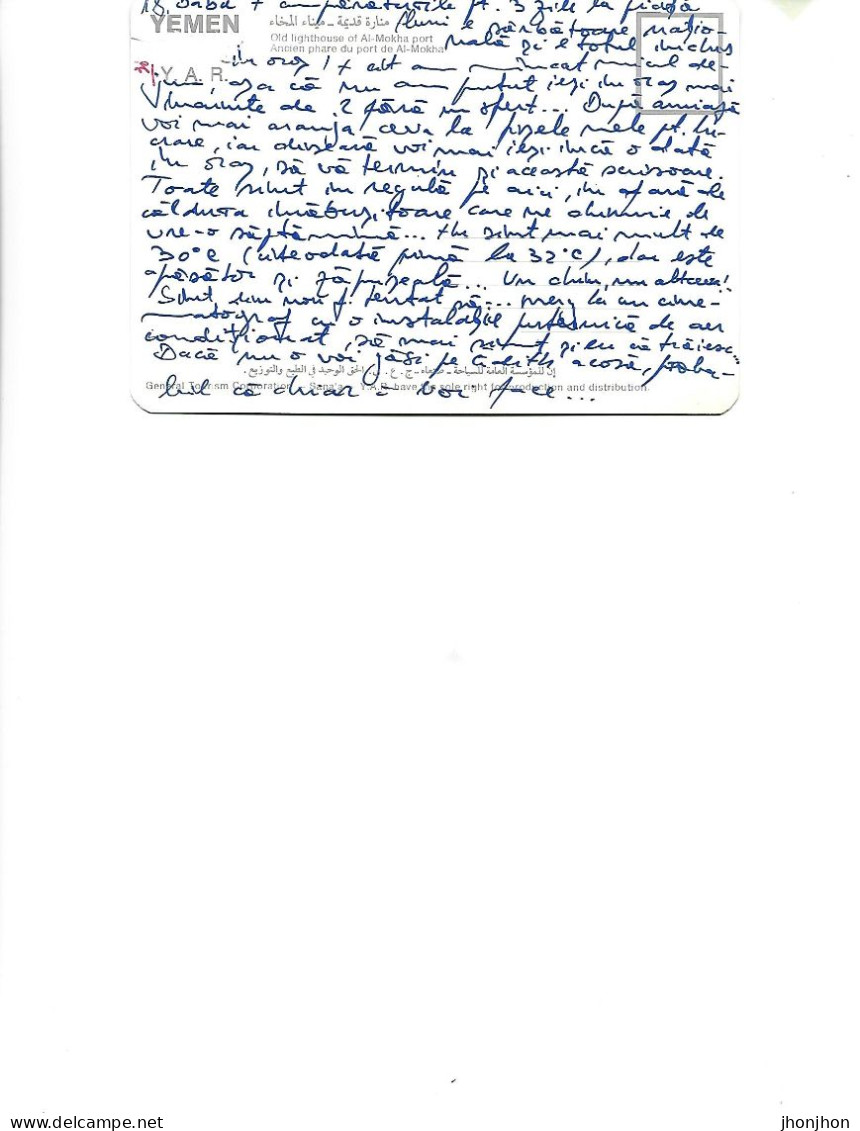 18. + cumpărăturile pt. 3 zile la piață
YEMEN
منارة قديمة - ميناء المخاء
(luni e sărbătoare națio-
Old lighthouse of Al-Mokha port
nală și e totul închis
Ancien phare du port de Al-Mokha
în oraș) + alt am mîncat micul de-
2/
Y. A. R.
jun, așa că nu am putut ieși în oraș mai
înainte de 2 fără un sfert... După amiază
voi mai aranja ceva la piesele mele pt. lu-
crare, iar diseară voi mai ieși încă o dată
în oraș, să vă termin și această scrisoare.
Toate sînt în regulă pe aici, în afară de
căldura înăbușitoare care ne chinuie de
vre-o săptămînă... Nu sînt mai mult de
30°C (cîteodată pînă la 32°C), dar este
apăsător și zăpușeală... Un chin, nu altceva!
Sînt, din nou, tentat să... merg la un cine-
matograf cu o instalație puternică de aer
condiționat, să mai simt și eu că trăiesc.
Dacă nu o voi găsi pe Edith acasă, proba-
إن للمؤسسة العامة للسياحة - صنعاء - ج . ع . ي . الحق الوحيد في الطبع والتوزيع .
General Tourism Corporation - Sana'a - Y.A.R. have the sole right for production and distribution.
bil că chiar o voi face...
jhonjhon
jhonjhon